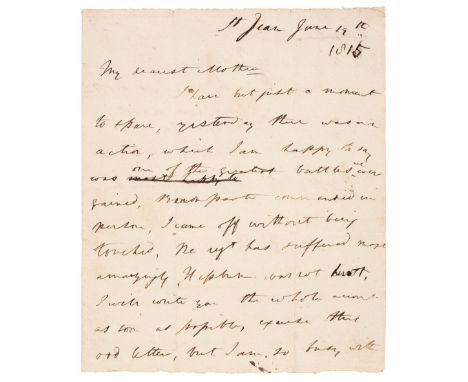 St Jean June 19th
1815
My dearest Mother
I have but just a moment
to spare, yesterday there was an
action, which I am happy to say
was one of the greatest battles ever
gained, Bonaparte commanded in
person, I came off without being
touched, The regt has suffered most
amazingly, Hepburn was not hurt,
I will write you the whole
as soon as possible, excuse this
odd letter, but I am so busy with